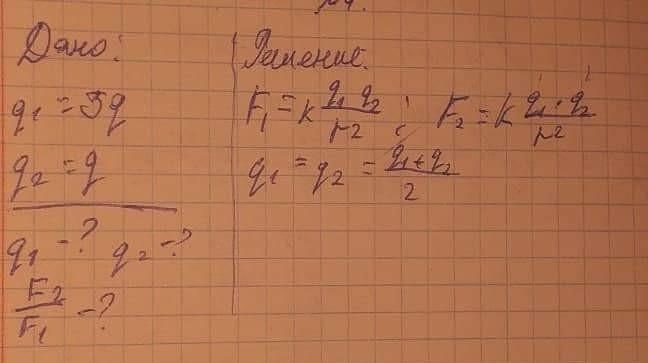 №4.
Дано:
q₁ = 5q
q₂ = q
q₁ - ? q₂ - ?
F₂/F₁ - ?
Решение.
F₁ = k q₁ q₂ / r² ; F₂ = k q₁' · q₂' / r²
q₁ = q₂ = q₁ + q₂ / 2